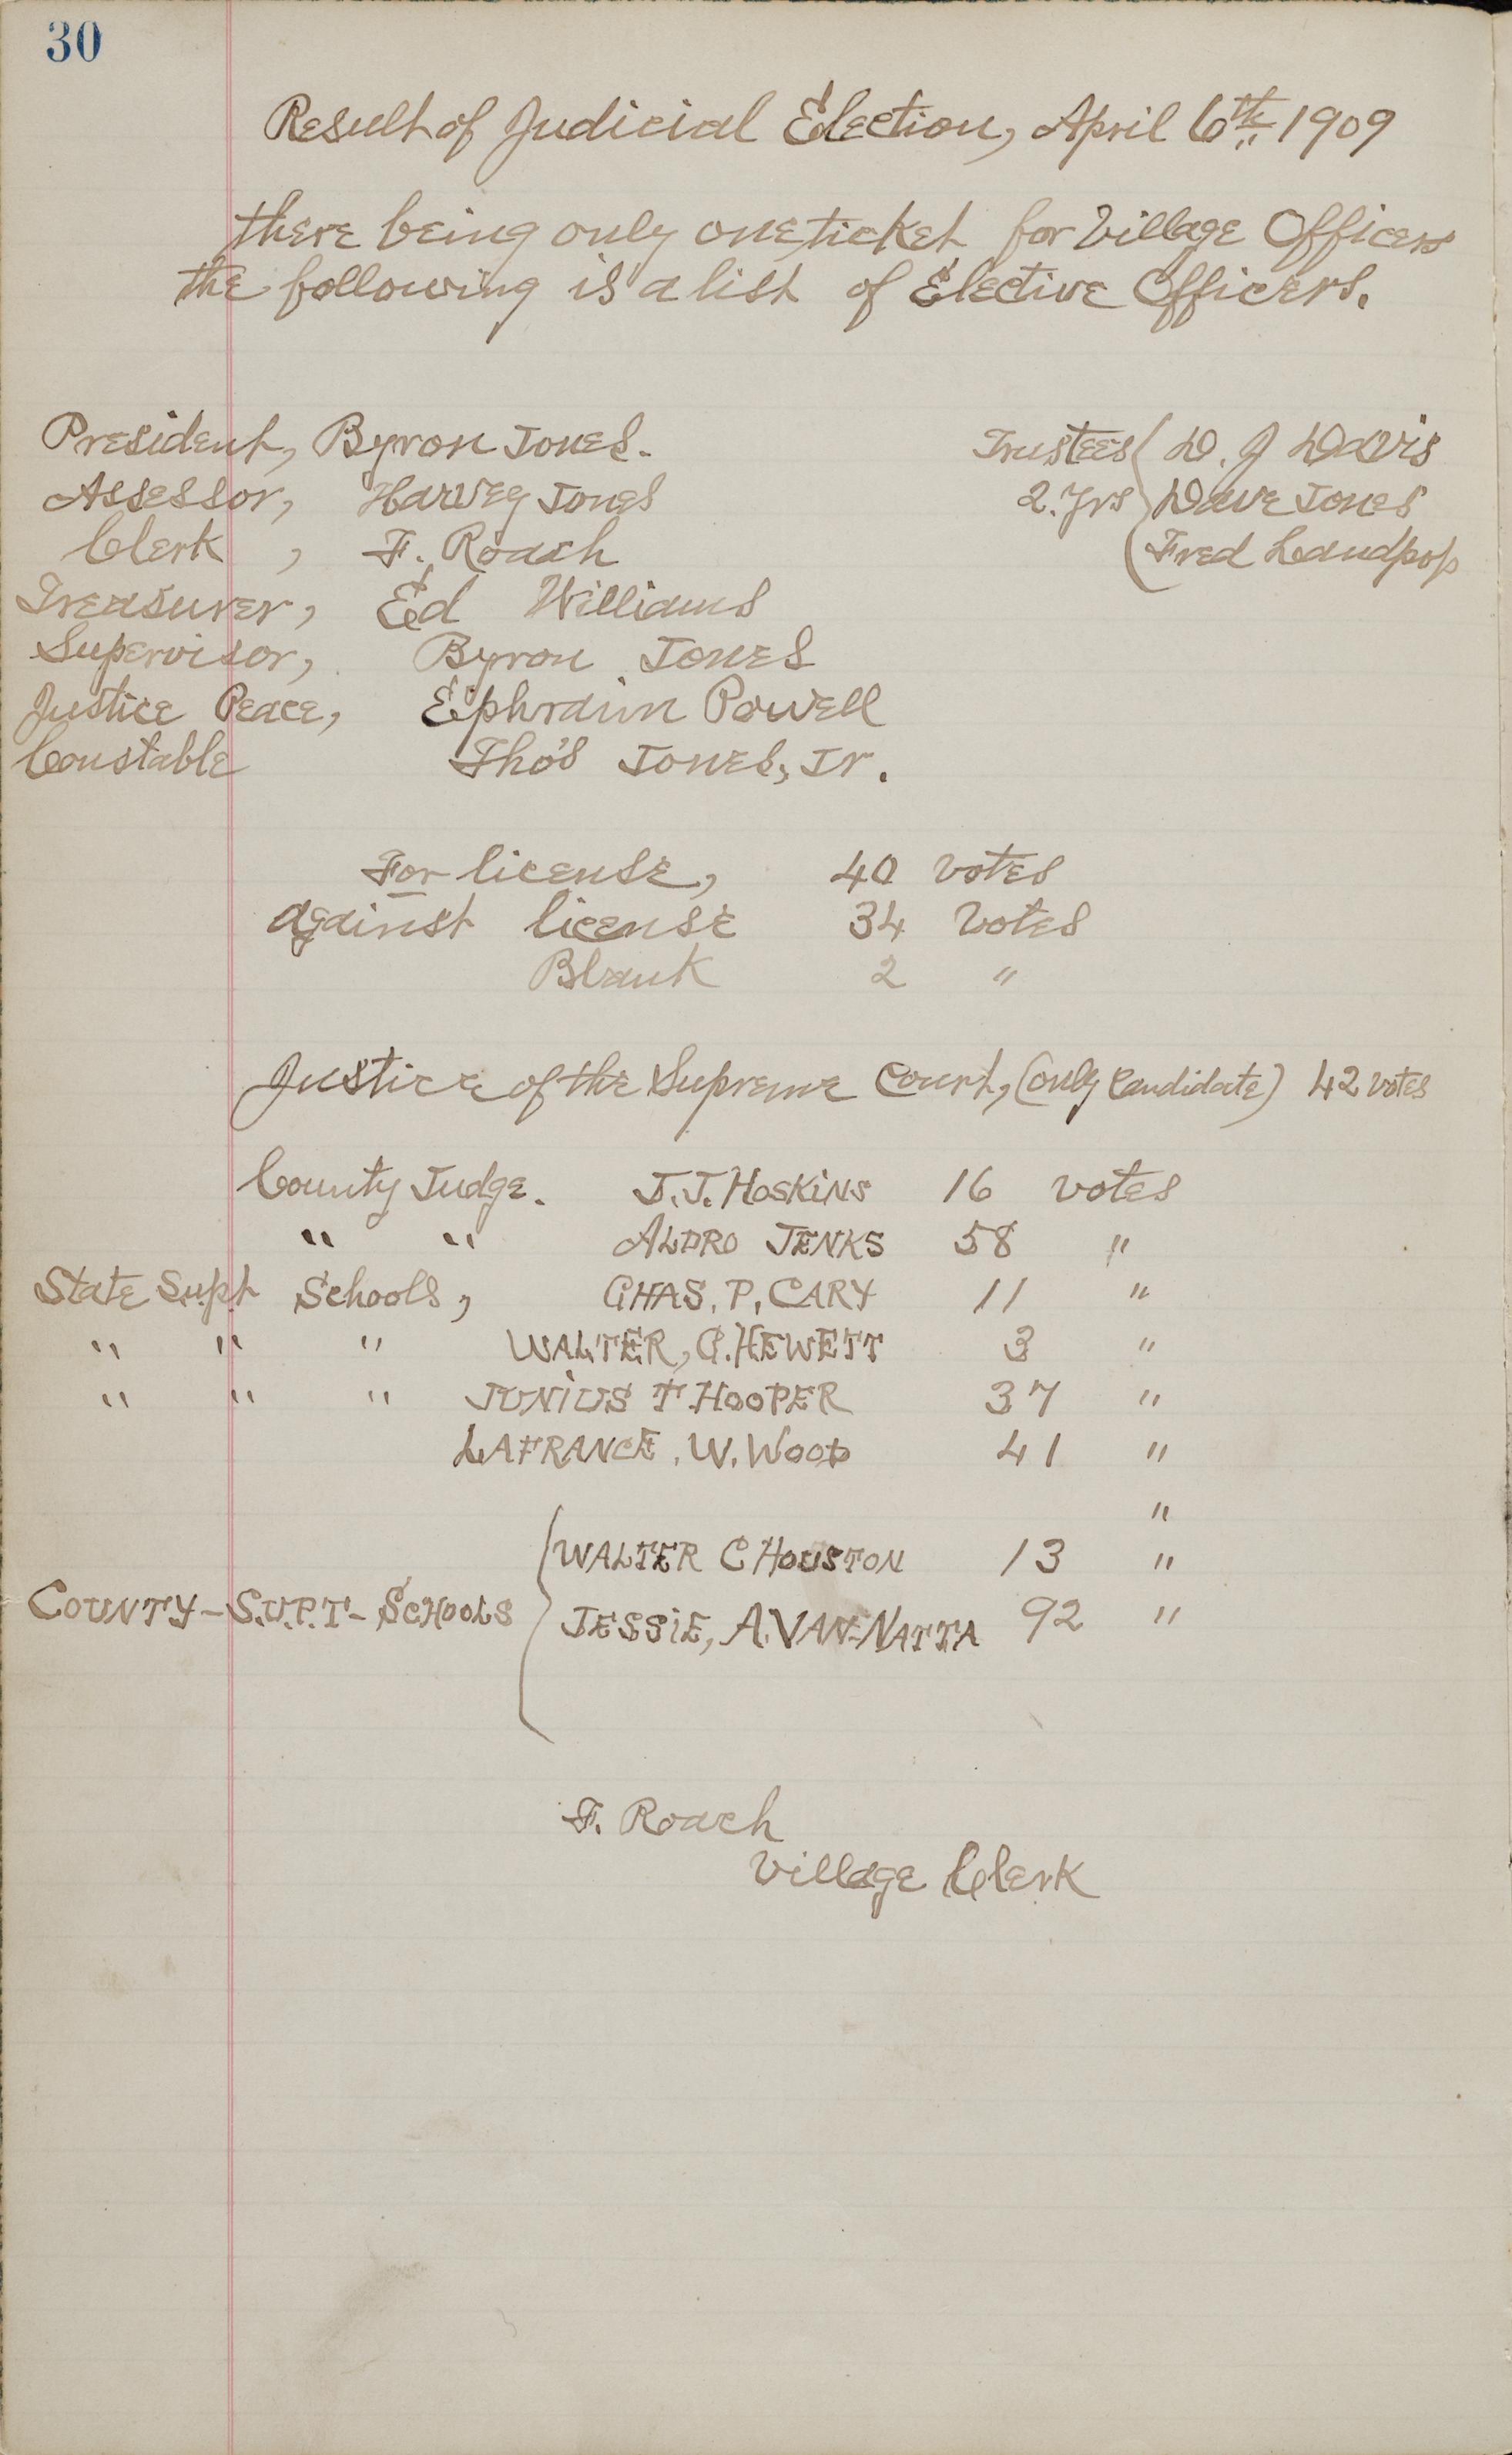 30
Result of Judicial Election, April 6th 1909
there being only one ticket for Village Officers
the following is a list of Elective Officers.
President, Byron Jones. Trustees D. J Davis
Assessor, Harvey Jones 2. Yrs Dave Jones
Clerk , F. Roach Fred Landpop
Treasurer, Ed Williams
Supervisor, Byron Jones
Justice Peace, Ephraim Powell
Constable Tho's Jones, Jr.
For license, 40 votes
against license 34 Votes
Blank 2 "
Justice of the Supreme Court, (only Candidate) 42 votes
County Judge. J. J. HOSKINS 16 votes
" " ALDRO JENKS 58 "
State Supt Schools, CHAS. P. CARY 11 "
" " " WALTER, G. HEWETT 3 "
" " " JUNIUS T. HOOPER 37 "
LAFRANCE. W. WOOD 41 "
"
WALTER C HOUSTON 13 "
COUNTY-S.U.P.T-SCHOOLS JESSIE, A. VAN-NATTA 92 "
F. Roach
Village Clerk